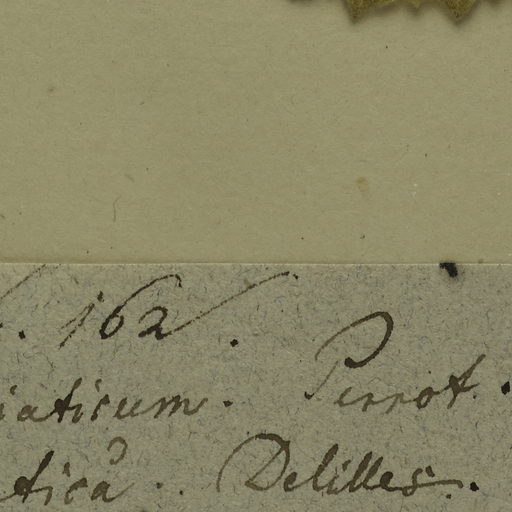 . 162.
iaticum. Perrot.
tica. Delilles.